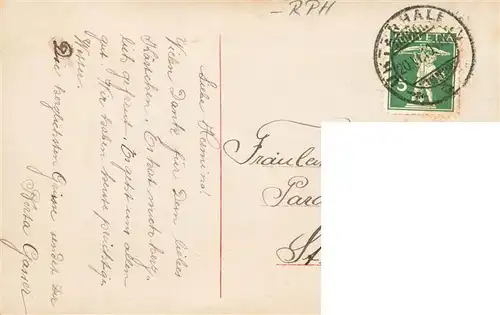 RPH
GALL
HELVETIA
5
Liebe Hermine!
Vielen Dank für Dein liebes
Kärtchen. Er hat mich herz.
lich gefreut. Es geht uns allen
gut. Wir haben heute prächtiges
Wetter.
Die herzlichsten Grüsse sendet Dir
Berta Ganser
Fräulein
Para
St